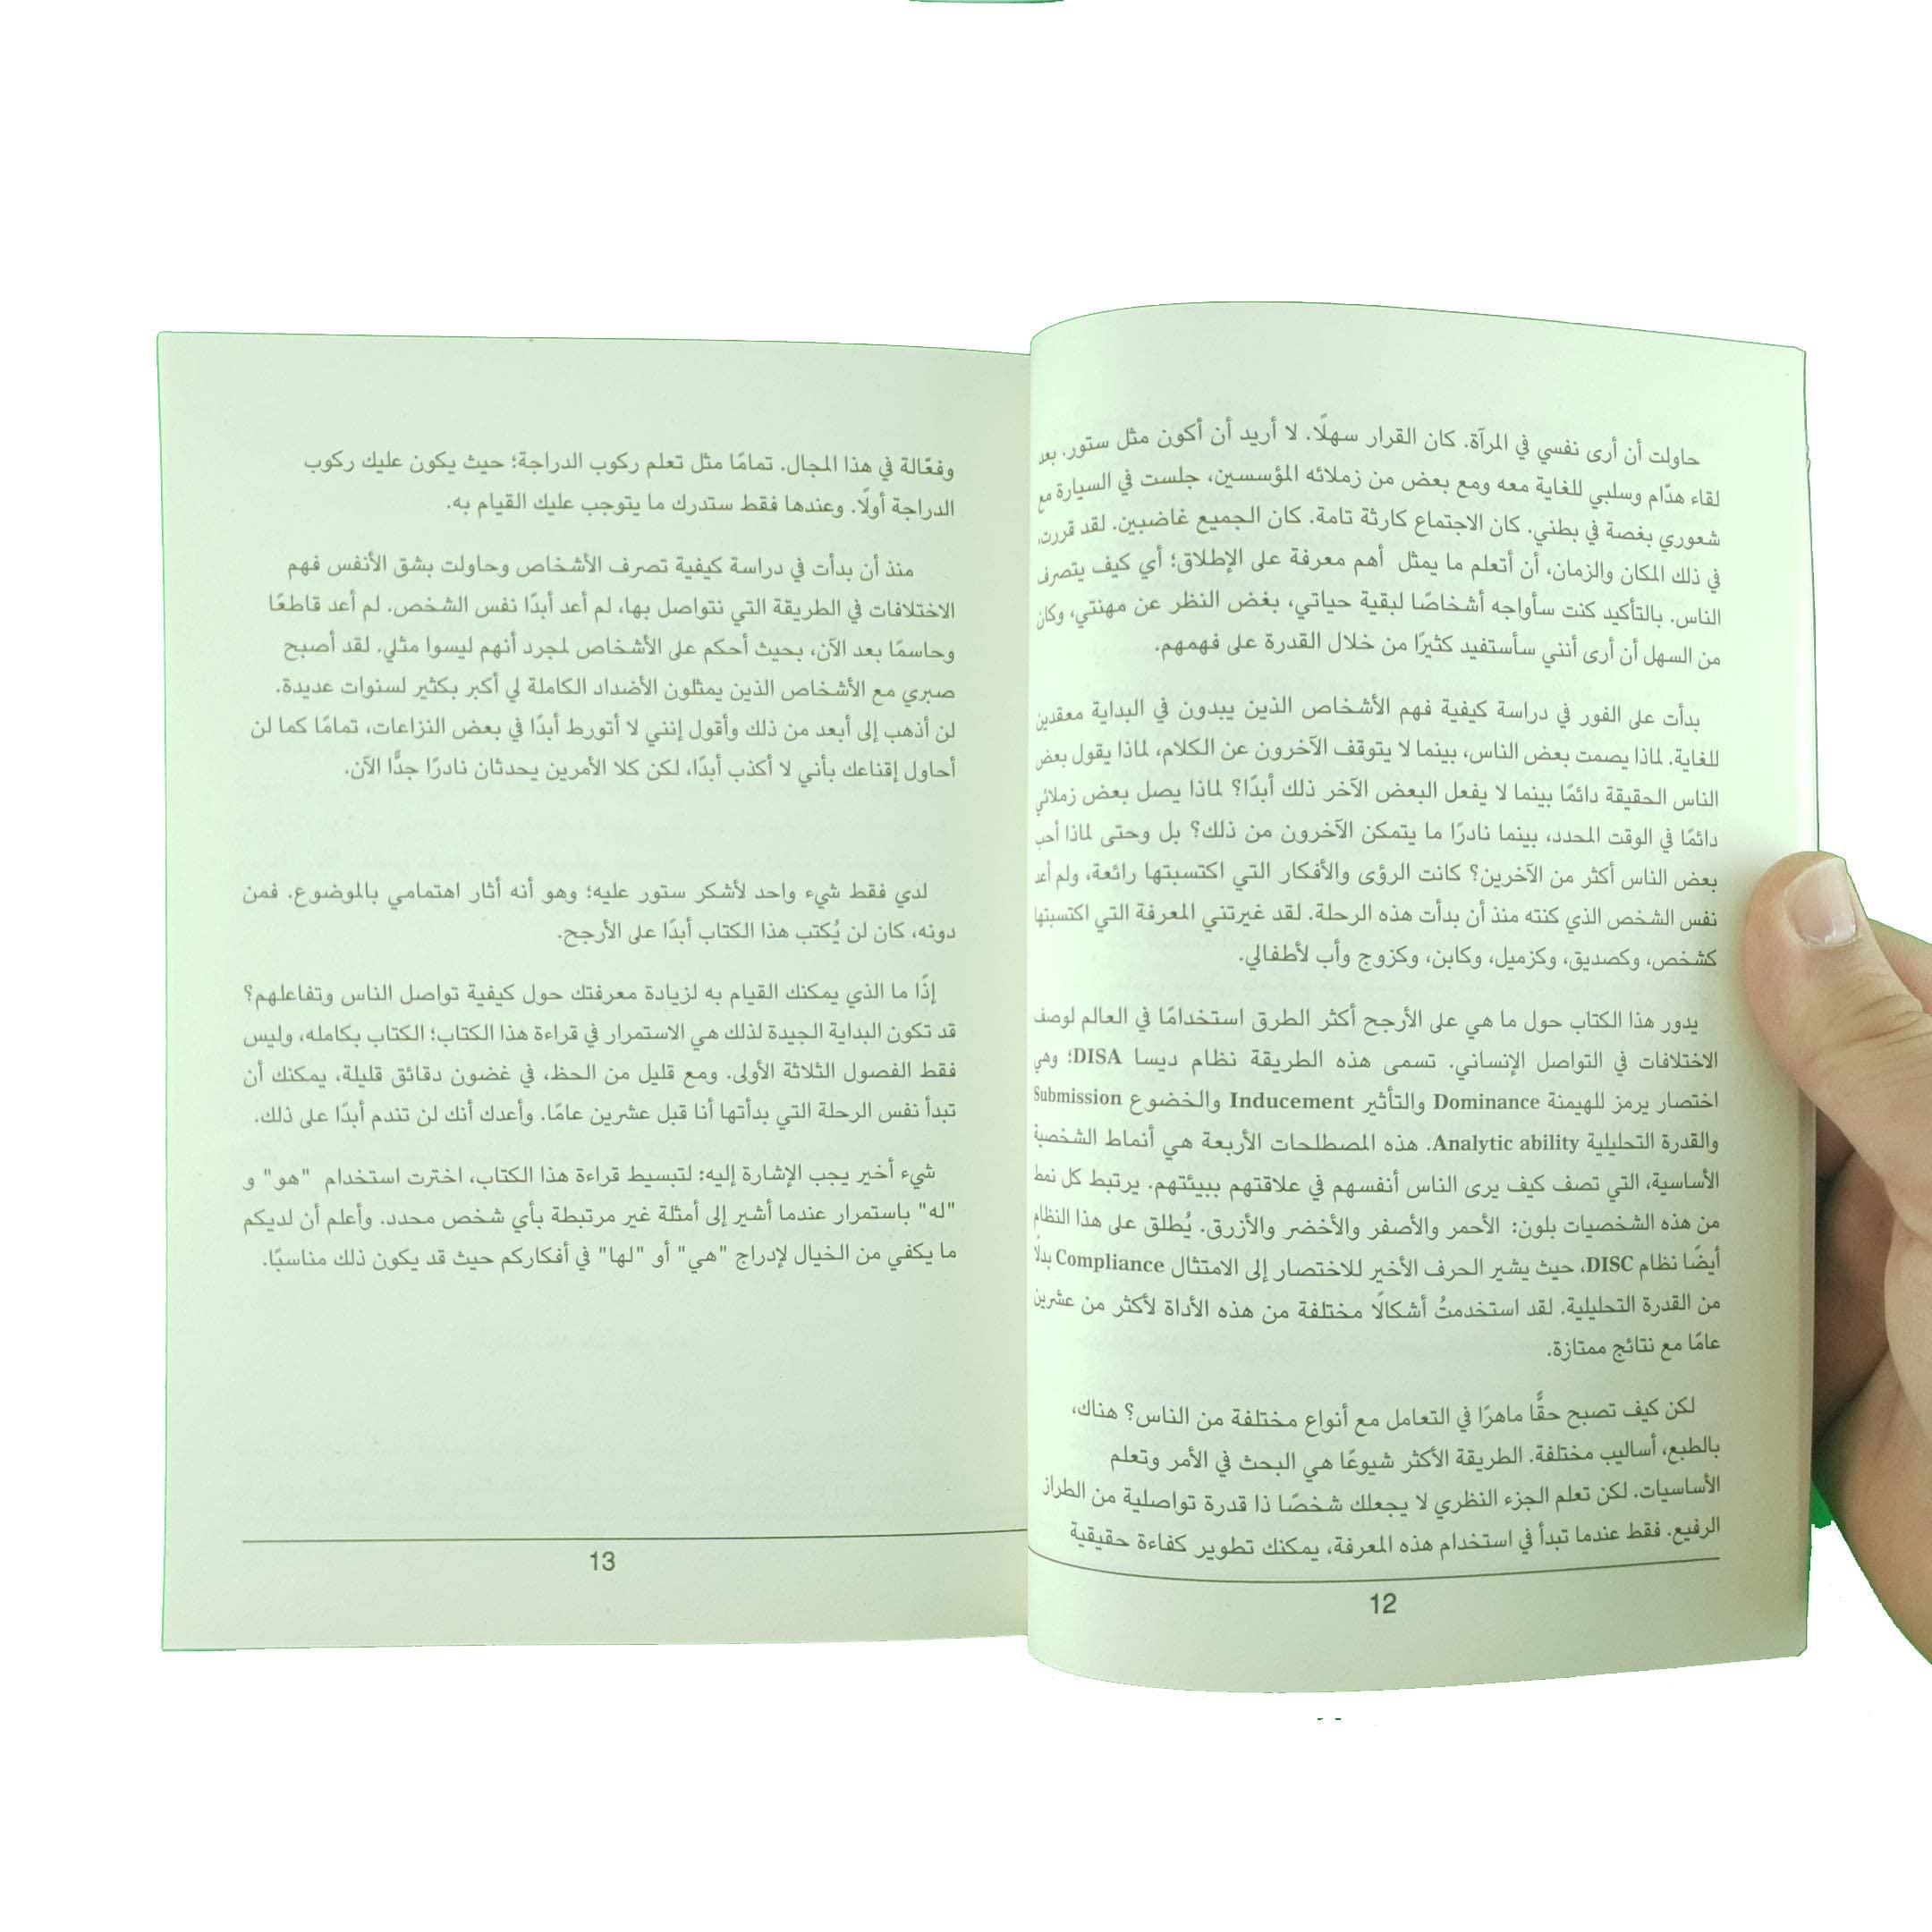 حاولت أن أرى نفسي في المرآة. كان القرار سهلًا. لا أريد أن أكون مثل ستور. بعد
لقاء هدّام وسلبي للغاية معه ومع بعض من زملائه المؤسسين، جلست في السيارة مع
شعوري بغصة في بطني. كان الاجتماع كارثة تامة. كان الجميع غاضبين. لقد قررت،
في ذلك المكان والزمان، أن أتعلم ما يمثل أهم معرفة على الإطلاق؛ أي كيف يتصرف
الناس. بالتأكيد كنت سأواجه أشخاصًا لبقية حياتي، بغض النظر عن مهنتي، وكان
من السهل أن أرى أنني سأستفيد كثيرًا من خلال القدرة على فهمهم.
بدأت على الفور في دراسة كيفية فهم الأشخاص الذين يبدون في البداية معقدين
للغاية. لماذا يصمت بعض الناس، بينما لا يتوقف الآخرون عن الكلام، لماذا يقول بعض
الناس الحقيقة دائمًا بينما لا يفعل البعض الآخر ذلك أبدًا؟ لماذا يصل بعض زملائي
دائمًا في الوقت المحدد، بينما نادرًا ما يتمكن الآخرون من ذلك؟ بل وحتى لماذا أحب
بعض الناس أكثر من الآخرين؟ كانت الرؤى والأفكار التي اكتسبتها رائعة، ولم أعد
نفس الشخص الذي كنته منذ أن بدأت هذه الرحلة. لقد غيرتني المعرفة التي اكتسبتها
كشخص، وكصديق، وكزميل، وكابن، وكزوج وأب لأطفالي.
يدور هذا الكتاب حول ما هي على الأرجح أكثر الطرق استخدامًا في العالم لوصف
الاختلافات في التواصل الإنساني. تسمى هذه الطريقة نظام ديسا DISA؛ وهي
اختصار يرمز للهيمنة Dominance والتأثير Inducement والخضوع Submission
والقدرة التحليلية Analytic ability. هذه المصطلحات الأربعة هي أنماط الشخصية
الأساسية، التي تصف كيف يرى الناس أنفسهم في علاقتهم ببيئتهم. يرتبط كل نمط
من هذه الشخصيات بلون: الأحمر والأصفر والأخضر والأزرق. يُطلق على هذا النظام
أيضًا نظام DISC، حيث يشير الحرف الأخير للاختصار إلى الامتثال Compliance بدلًا
من القدرة التحليلية. لقد استخدمتُ أشكالًا مختلفة من هذه الأداة لأكثر من عشرين
عامًا مع نتائج ممتازة.
لكن كيف تصبح حقًّا ماهرًا في التعامل مع أنواع مختلفة من الناس؟ هناك،
بالطبع، أساليب مختلفة. الطريقة الأكثر شيوعًا هي البحث في الأمر وتعلم
الأساسيات. لكن تعلم الجزء النظري لا يجعلك شخصًا ذا قدرة تواصلية من الطراز
الرفيع. فقط عندما تبدأ في استخدام هذه المعرفة، يمكنك تطوير كفاءة حقيقية
12
وفعّالة في هذا المجال. تمامًا مثل تعلم ركوب الدراجة؛ حيث يكون عليك ركوب
الدراجة أولًا. وعندها فقط ستدرك ما يتوجب عليك القيام به.
منذ أن بدأت في دراسة كيفية تصرف الأشخاص وحاولت بشق الأنفس فهم
الاختلافات في الطريقة التي نتواصل بها، لم أعد أبدًا نفس الشخص. لم أعد قاطعًا
وحاسمًا بعد الآن، بحيث أحكم على الأشخاص لمجرد أنهم ليسوا مثلي. لقد أصبح
صبري مع الأشخاص الذين يمثلون الأضداد الكاملة لي أكبر بكثير لسنوات عديدة.
لن أذهب إلى أبعد من ذلك وأقول إنني لا أتورط أبدًا في بعض النزاعات، تمامًا كما لن
أحاول إقناعك بأني لا أكذب أبدًا، لكن كلا الأمرين يحدثان نادرًا جدًّا الآن.
لدي فقط شيء واحد لأشكر ستور عليه؛ وهو أنه أثار اهتمامي بالموضوع. فمن
دونه، كان لن يُكتب هذا الكتاب أبدًا على الأرجح.
إذًا ما الذي يمكنك القيام به لزيادة معرفتك حول كيفية تواصل الناس وتفاعلهم؟
قد تكون البداية الجيدة لذلك هي الاستمرار في قراءة هذا الكتاب؛ الكتاب بكامله، وليس
فقط الفصول الثلاثة الأولى. ومع قليل من الحظ، في غضون دقائق قليلة، يمكنك أن
تبدأ نفس الرحلة التي بدأتها أنا قبل عشرين عامًا. وأعدك أنك لن تندم أبدًا على ذلك.
شيء أخير يجب الإشارة إليه: لتبسيط قراءة هذا الكتاب، اخترت استخدام "هو" و
"له" باستمرار عندما أشير إلى أمثلة غير مرتبطة بأي شخص محدد. وأعلم أن لديكم
ما يكفي من الخيال لإدراج "هي" أو "لها" في أفكاركم حيث قد يكون ذلك مناسبًا.
13